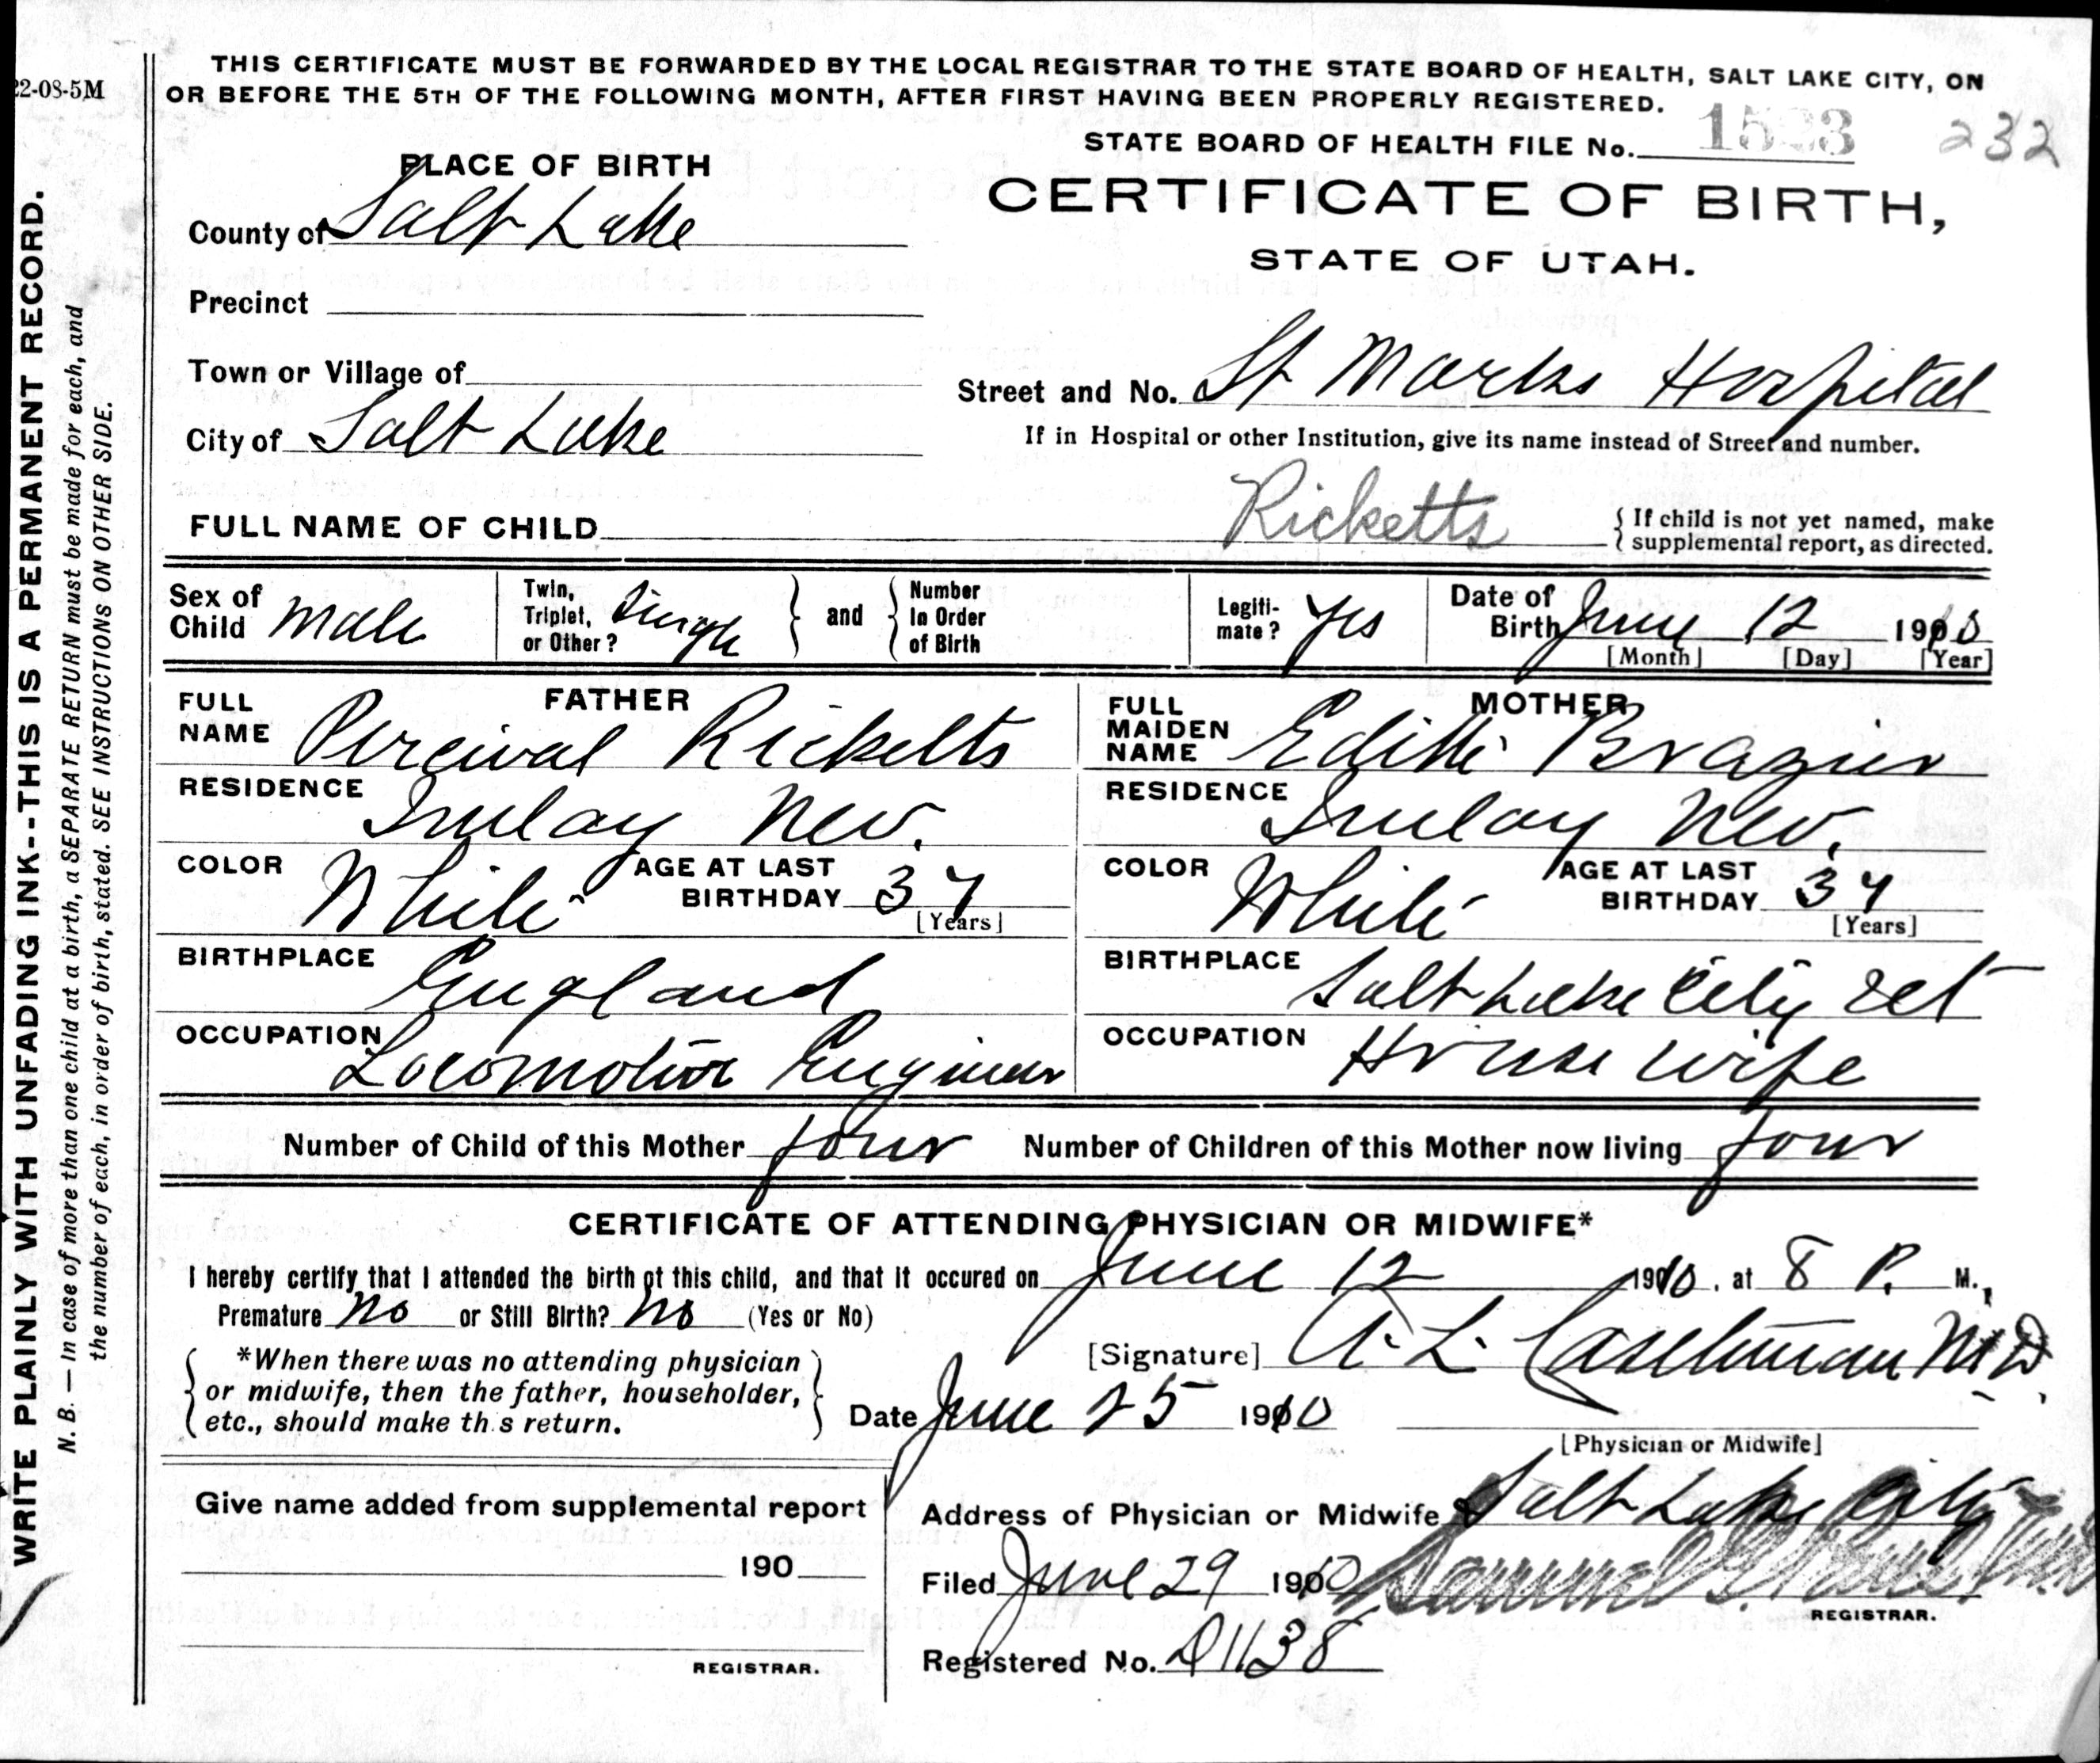 22-08-5M
THIS CERTIFICATE MUST BE FORWARDED BY THE LOCAL REGISTRAR TO THE STATE BOARD OF HEALTH, SALT LAKE CITY, ON
OR BEFORE THE 5TH OF THE FOLLOWING MONTH, AFTER FIRST HAVING BEEN PROPERLY REGISTERED.
STATE BOARD OF HEALTH FILE No. 232
CERTIFICATE OF BIRTH,
STATE OF UTAH.
PLACE OF BIRTH
County of Salt Lake
Precinct
Town or Village of
Street and No. St Marks Hospital
City of Salt Lake
If in Hospital or other Institution, give its name instead of Street and number.
FULL NAME OF CHILD Ricketts
{ If child is not yet named, make
{ supplemental report, as directed.
Sex of Child Male
Twin, Triplet, or Other? Single } and { Number In Order of Birth
Legiti-mate? Yes
Date of Birth June 12 1910
[Month] [Day] [Year]
FATHER
FULL NAME Percival Ricketts
RESIDENCE Imlay Nev.
COLOR White AGE AT LAST BIRTHDAY 37
[Years]
BIRTHPLACE England
OCCUPATION Locomotive Engineer
MOTHER
FULL MAIDEN NAME Edith Brazier
RESIDENCE Imlay Nev.
COLOR White AGE AT LAST BIRTHDAY 34
[Years]
BIRTHPLACE Salt Lake City Ut
OCCUPATION House wife
Number of Child of this Mother four Number of Children of this Mother now living four
CERTIFICATE OF ATTENDING PHYSICIAN OR MIDWIFE*
I hereby certify that I attended the birth of this child, and that it occured on June 12 1910, at 8 P. M.,
Premature no or Still Birth? no (Yes or No)
[Signature] A. L. Castleman MD.
*When there was no attending physician
or midwife, then the father, householder,
etc., should make th.s return.
Date June 25 1910
[Physician or Midwife]
Give name added from supplemental report
190
REGISTRAR.
Address of Physician or Midwife Salt Lake City
Filed June 29 1910 Samuel G. Paul
REGISTRAR.
Registered No. D1138
WRITE PLAINLY WITH UNFADING INK--THIS IS A PERMANENT RECORD.
N. B. — In case of more than one child at a birth, a SEPARATE RETURN must be made for each, and
the number of each, in order of birth, stated. SEE INSTRUCTIONS ON OTHER SIDE.